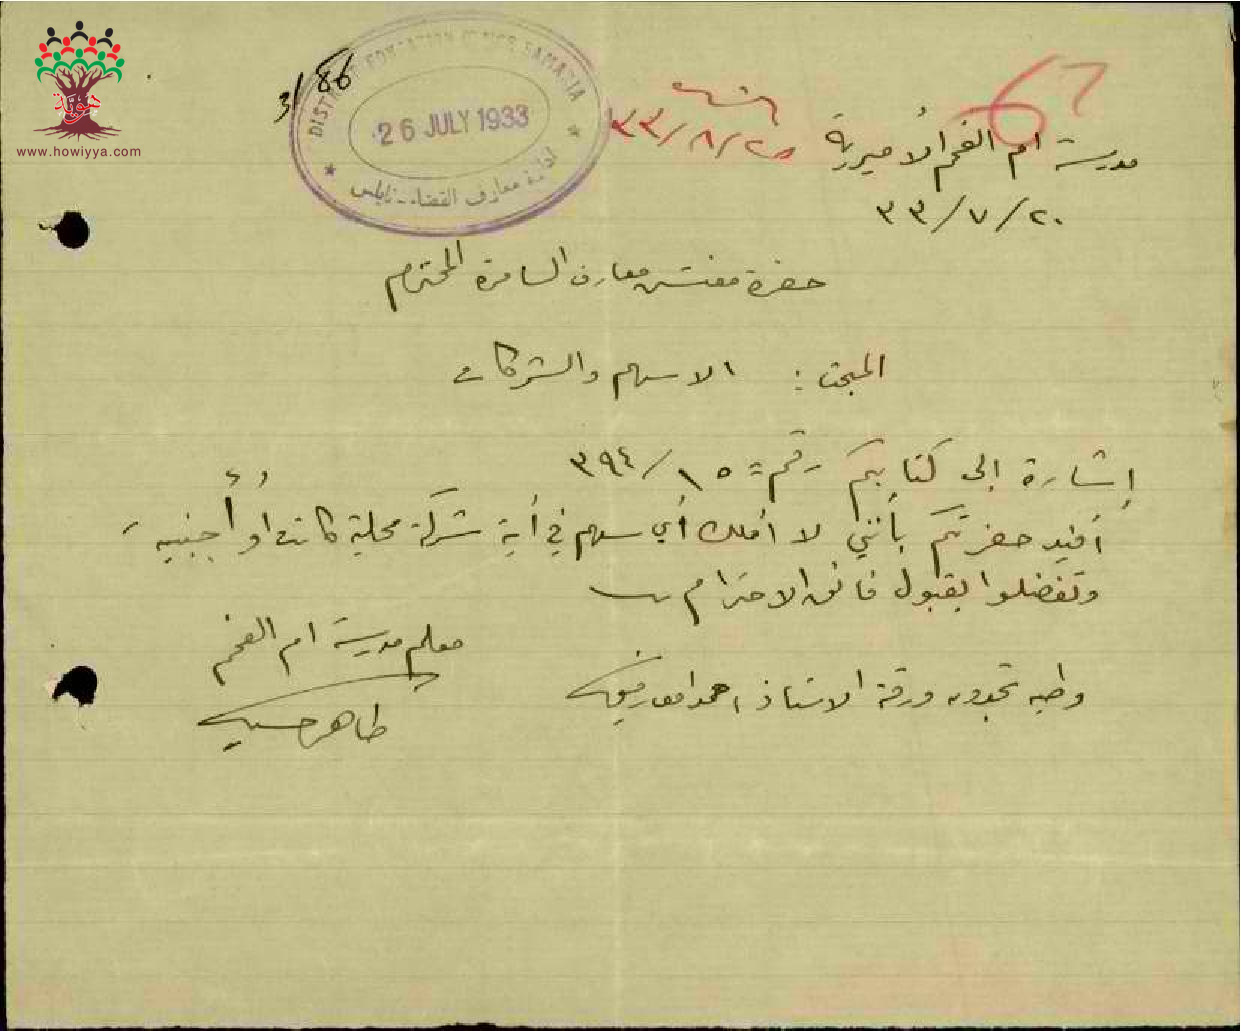 هوية
www.howiyya.com
3/86
DISTRICT EDUCATION OFFICE SAMARIA
26 JULY 1933
ادارة معارف القضاء - نابلس
٣٣/٨/٢٥
مدرسة ام الفحم الأميرية
٣٣/٧/٢٠
حضرة مفتش معارف السامرة المحترم
المبحث : الاسهم والشركات
إشارة إلى كتابكم رقم = ١٥/٣٩٤
أفيد حضرتكم بأنني لا املك أي سهم في أية شركة محلية كانت او أجنبية -
وتفضلوا بقبول فائق الاحترام
معلم مدرسة ام الفحم
طاهر حسين
وطيه تجدون ورقة الاستاذ احمد